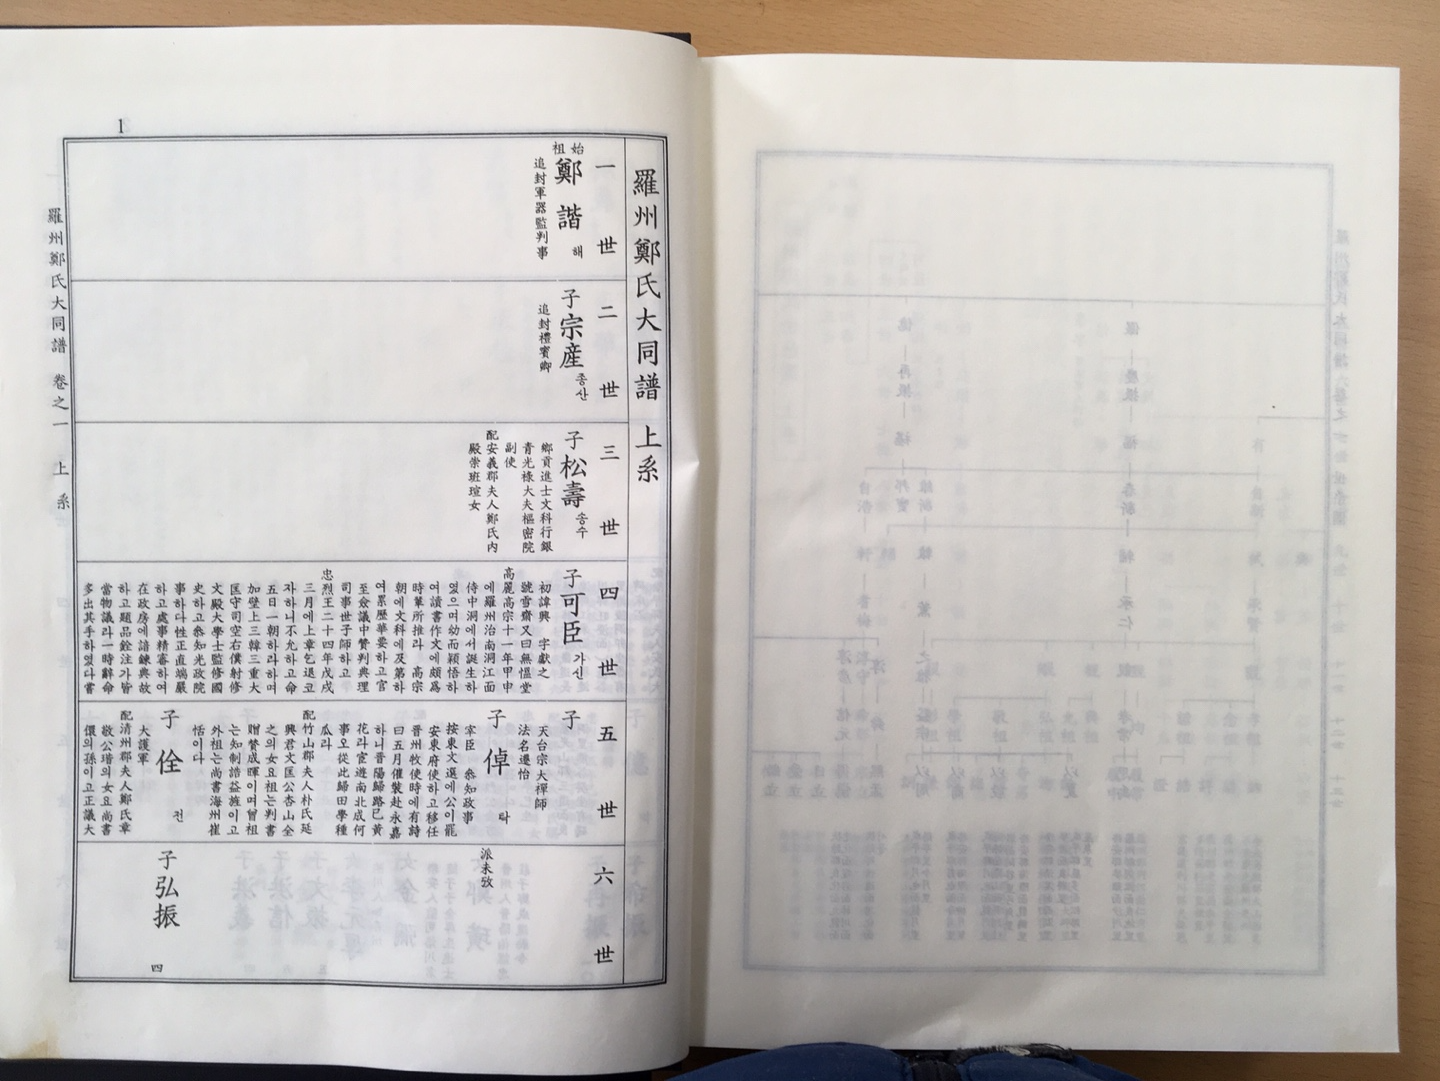 羅州鄭氏大同譜 上系
一世
始祖
鄭諧 해
追封軍器監判事
二世
子
宗産 종산
追封禮賓卿
三世
子
松壽 송수
鄉貢進士文科行銀
青光祿大夫樞密院
副使
配安義郡夫人鄭氏內
殿崇班瑄女
四世
子
可臣 가신
初諱興 字獻之
號雪齋又曰無慍堂
高麗高宗十一年甲申
에羅州治南洞江面
侍中洞에서誕生하
였으며幼而穎悟하
여讀書作文에頗爲
時輩所推라 高宗
朝에文科에及第하
여累歷華要하고官
至僉議中贊判典理
司事世子師하고
忠烈王二十四年戊戌
三月에上章乞退코
자하니不允하고命
五日一朝하라하며
加壁上三韓三重大
匡守司空右僕射修
文殿大學士監修國
史하고參知光政院
事하다性正直端嚴
하고處事精審하여
在政房에諳鍊典故
하고題品銓注가皆
當物議라一時辭命
多出其手하였다嘗
五世
子
天台宗大禪師
法名暹怡
子
倬 탁
宰臣 參知政事
按東文選에公이罷
安東府使하고移任
晋州牧使時에有詩
曰五月催裝赴永嘉
하니晋陽歸路已黃
花라宦遊南北成何
事오從此歸田學種
瓜라
配竹山郡夫人朴氏延
興君文匡公杏山全
之의女요祖는判書
贈贊成暉이며曾祖
는知制誥益旌이고
外祖는尚書海州崔
恬이다
子
佺 전
大護軍
配清州郡夫人鄭氏章
敬公瑎의女요尚書
儇의孫이고正議大
六世
派未攷
子
弘振
四
羅州鄭氏大同譜 卷之一 上系
1